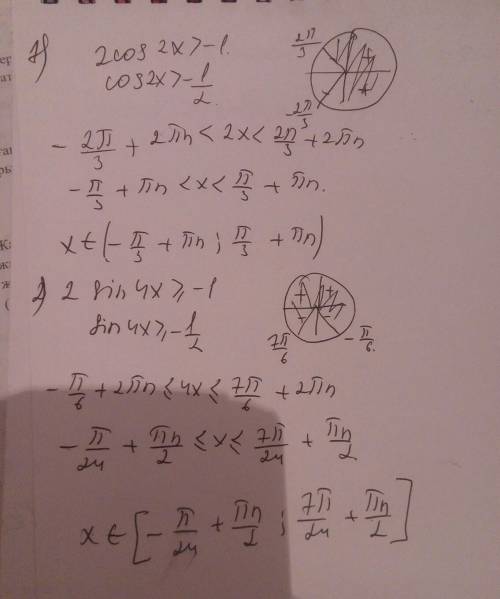 1) 2cos 2x > -1.
cos2x > -1/2.
2π/3
-2π/3
+ +
-2π/3 + 2πn < 2x < 2π/3 + 2πn
-π/3 + πn < x < π/3 + πn.
x ∈ (-π/3 + πn ; π/3 + πn)
2) 2 sin 4x ≥ -1
sin 4x ≥ -1/2
+ +
7π/6
-π/6.
-π/6 + 2πn ≤ 4x ≤ 7π/6 + 2πn
-π/24 + πn/2 ≤ x ≤ 7π/24 + πn/2
x ∈ [-π/24 + πn/2 ; 7π/24 + πn/2]